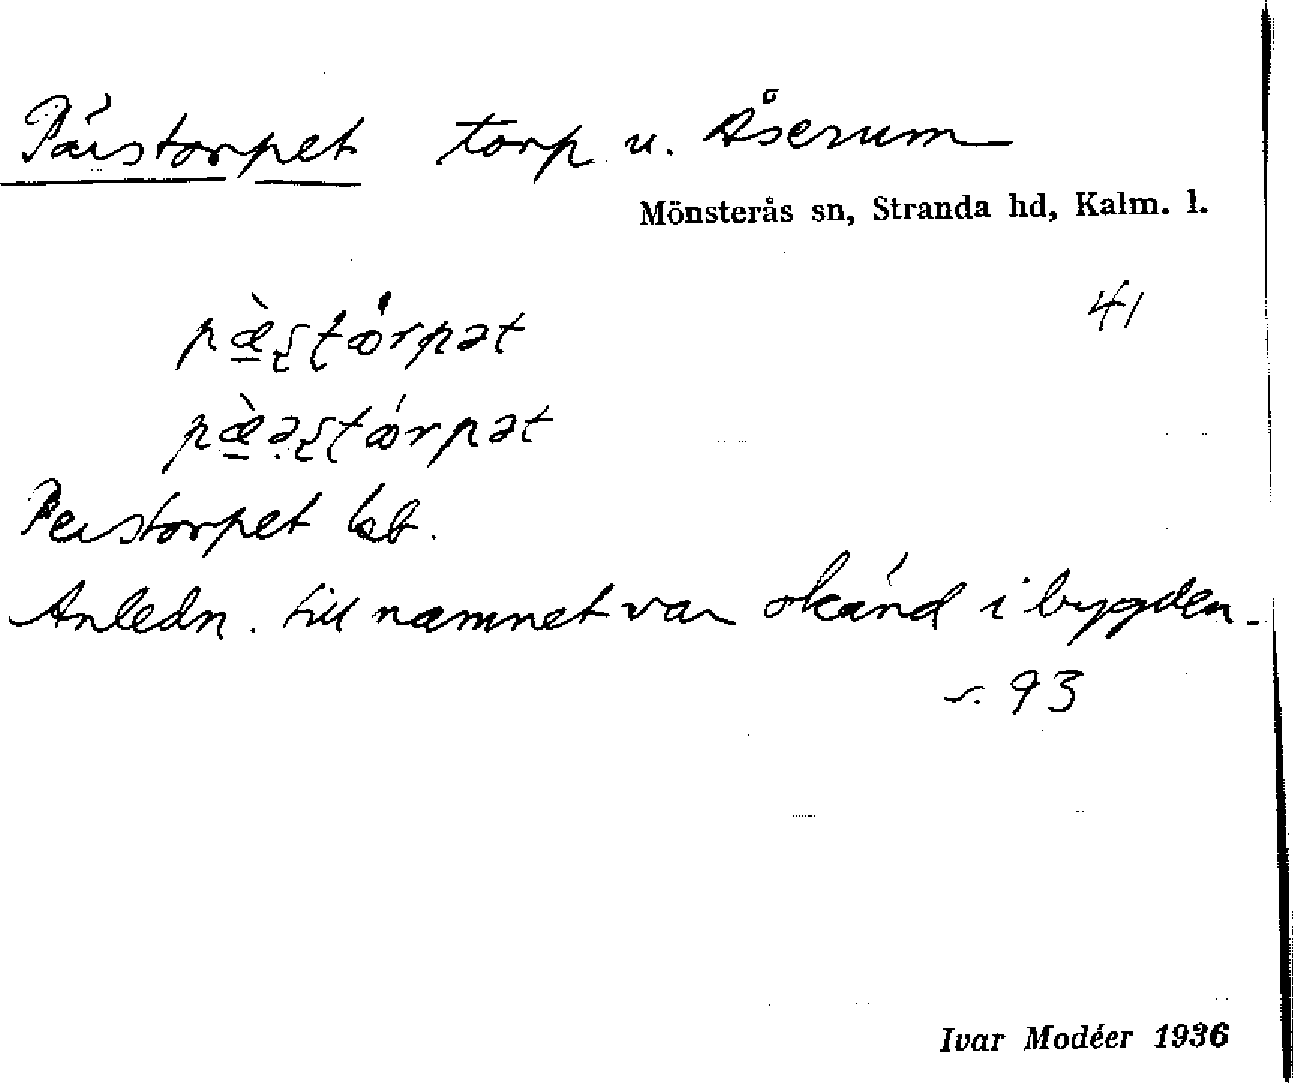 Pärstorpet torp u. Åserum
Mönsterås sn, Stranda hd, Kalm. l.
41
Perstorpet kb.
Anledn. till namnet var okänd i bygden.
s. 93
Ivar Modéer 1936